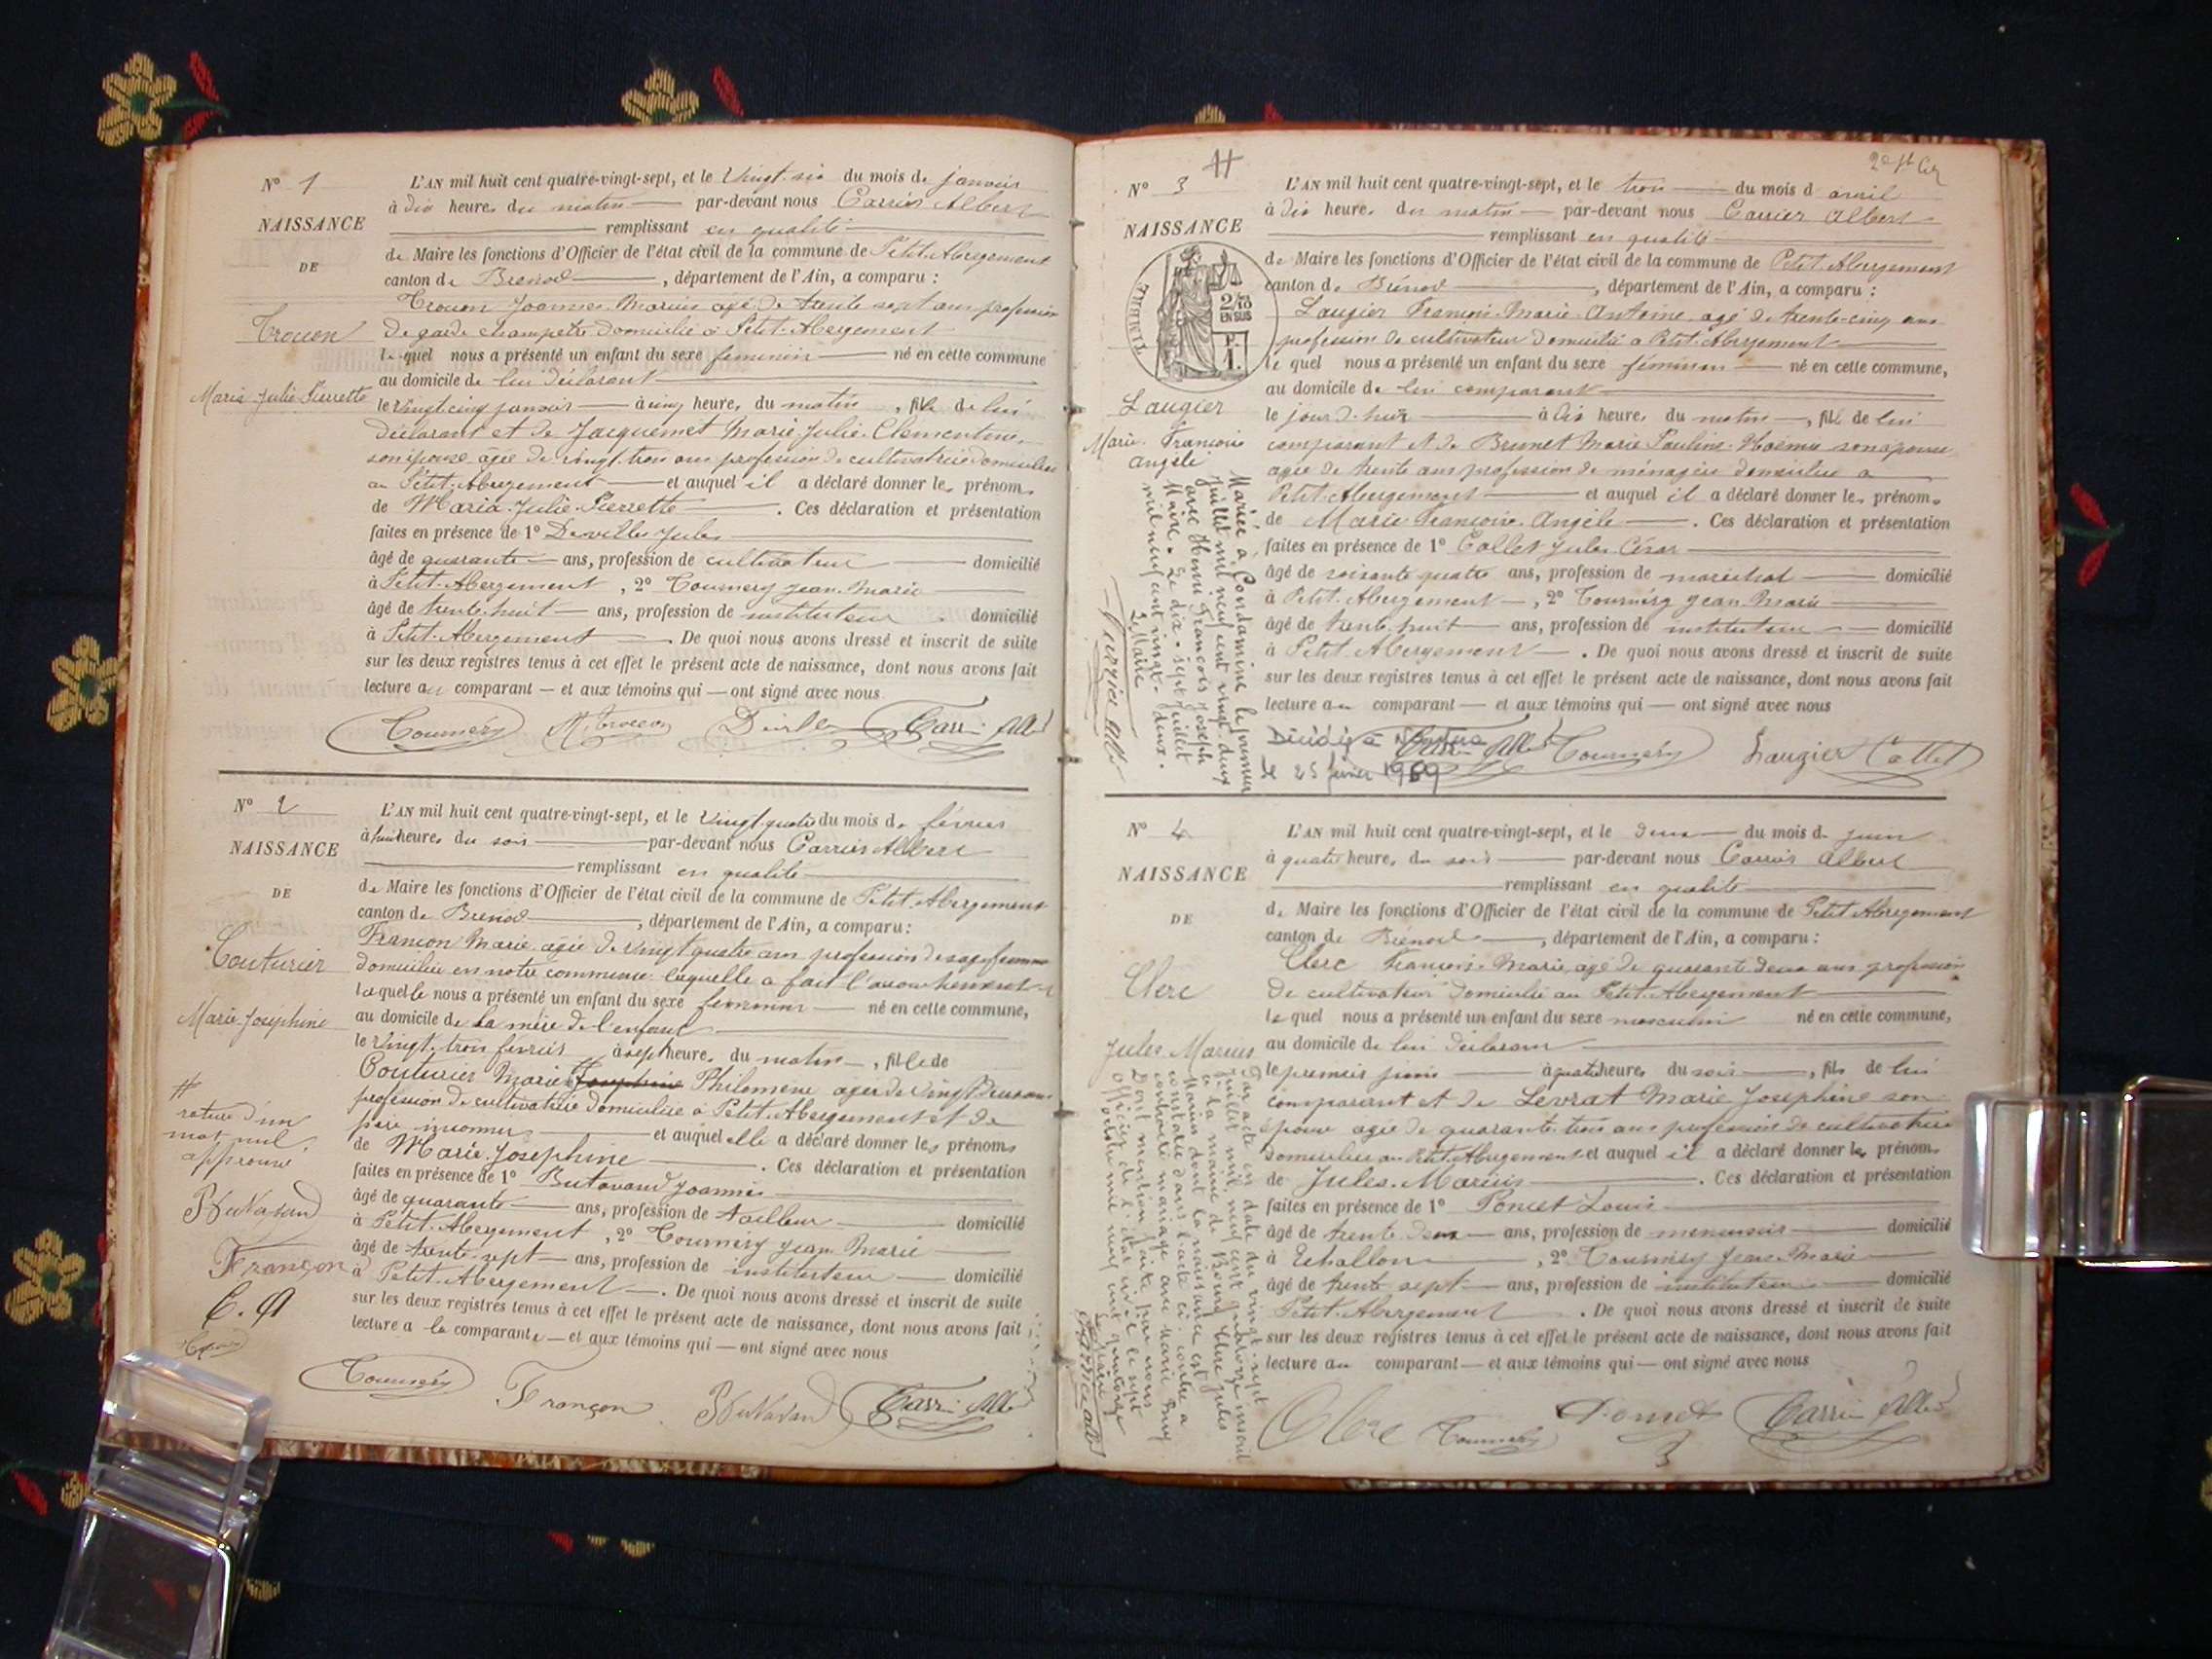 N° 1
NAISSANCE
DE
Trocon
Marie Julie Pierrette
L'AN mil huit cent quatre-vingt-sept, et le vingt-six du mois de janvier
à dix heures du matin par-devant nous Carrier Albert
remplissant en qualité
de Maire les fonctions d'Officier de l'état civil de la commune de Petit-Abergement
canton de Brénod, département de l'Ain, a comparu :
Joannes Marius agé de trente sept ans profession
de garde champêtre domicilié à Petit-Abergement
lequel nous a présenté un enfant du sexe féminin né en cette commune
au domicile de lui déclarant
le vingt cinq janvier à cinq heures du matin, fille de lui
déclarant et de Jacquemet Marie Julie Clementine
son épouse agée de vingt trois ans profession de cultivatrice domiciliée
au Petit-Abergement et auquel il a déclaré donner les prénoms
de Maria Julie Pierrette. Ces déclaration et présentation
faites en présence de 1° Deville Jules
âgé de quarante ans, profession de cultivateur domicilié
à Petit-Abergement, 2° Tournéry Jean Marie
âgé de trente-huit ans, profession de instituteur domicilié
à Petit-Abergement. De quoi nous avons dressé et inscrit de suite
sur les deux registres tenus à cet effet le présent acte de naissance, dont nous avons fait
lecture au comparant et aux témoins qui ont signé avec nous
Tournéry
N° 2
NAISSANCE
DE
Couturier
Marie Joséphine
rature d'un
mot nul
approuvé
Françon
L'AN mil huit cent quatre-vingt-sept, et le vingt-quatre du mois de février
à huit heures du soir par-devant nous Carrier Albert
remplissant en qualité
de Maire les fonctions d'Officier de l'état civil de la commune de Petit-Abergement
canton de Brénod, département de l'Ain, a comparu :
Françon Marie agée de vingt quatre ans profession de sage femme
domiciliée en notre commune laquelle a fait l'accouchement
laquelle nous a présenté un enfant du sexe féminin né en cette commune,
au domicile de la mère de l'enfant
le vingt-trois février à sept heures du matin, fille de
Couturier Marie Josephine Philomène agée de vingt deux ans
profession de cultivatrice domiciliée à Petit-Abergement et de
père inconnu et auquel elle a déclaré donner les prénoms
de Marie Joséphine. Ces déclaration et présentation
faites en présence de 1° Butavand Joannès
âgé de quarante ans, profession de tailleur domicilié
à Petit-Abergement, 2° Tournéry Jean Marie
âgé de trente-sept ans, profession de instituteur domicilié
à Petit-Abergement. De quoi nous avons dressé et inscrit de suite
sur les deux registres tenus à cet effet le présent acte de naissance, dont nous avons fait
lecture a la comparante et aux témoins qui ont signé avec nous
Tournéry Françon Butavand
N° 3
NAISSANCE
2/10
EN SUS
Laugier
Marie Françoise
Angèle
Mariée à Condamine le premier
juillet mil neuf cent vingt deux
avec Henri François Joseph
Maire. Le dix-sept juillet
mil neuf cent vingt-deux.
Le Maire
L'AN mil huit cent quatre-vingt-sept, et le trois du mois d avril
à dix heures du matin par-devant nous Carrier Albert
remplissant en qualité
de Maire les fonctions d'Officier de l'état civil de la commune de Petit-Abergement
canton de Brénod, département de l'Ain, a comparu :
Laugier François-Marie-Antoine, agé de trente-cinq ans
profession de cultivateur domicilié à Petit-Abergement
lequel nous a présenté un enfant du sexe féminin né en cette commune,
au domicile de lui comparant
le jour d'hui à dix heures du matin, fille de lui
comparant et de Brunet Marie Pauline Noémie son épouse
agée de trente ans profession de ménagère domiciliée à
Petit-Abergement et auquel il a déclaré donner les prénoms
de Marie Françoise Angèle. Ces déclaration et présentation
faites en présence de 1° Collet Jules César
âgé de soixante quatre ans, profession de maréchal domicilié
à Petit-Abergement, 2° Tournéry Jean Marie
âgé de trente-huit ans, profession de instituteur domicilié
à Petit-Abergement. De quoi nous avons dressé et inscrit de suite
sur les deux registres tenus à cet effet le présent acte de naissance, dont nous avons fait
lecture au comparant et aux témoins qui ont signé avec nous
Décédée à Nantua
le 25 1969
Tournéry Laugier Collet
N° 4
NAISSANCE
DE
Clerc
Jules Marius
Par acte en date du vingt-sept
juillet mil neuf cent quatorze inscrit
à la mairie de Clerc Jules
Marius dont la naissance est
constatée dans l'acte ci-contre a
contracté mariage avec Marie
Dont mention faite par nous
officier de l'état civil le sept
août mil neuf cent quatorze
L'AN mil huit cent quatre-vingt-sept, et le deux du mois de juin
à quatre heures du soir par-devant nous Carrier Albert
remplissant en qualité
de Maire les fonctions d'Officier de l'état civil de la commune de Petit-Abergement
canton de Brénod, département de l'Ain, a comparu :
Clerc François-Marie, agé de quarante deux ans profession
de cultivateur domicilié au Petit-Abergement
lequel nous a présenté un enfant du sexe masculin né en cette commune,
au domicile de lui déclarant
le premier juin à quatre heures du soir, fils de lui
comparant et de Levrat Marie Joséphine son
épouse agée de quarante trois ans profession de cultivatrice
domiciliée au Petit-Abergement et auquel il a déclaré donner les prénoms
de Jules-Marius. Ces déclaration et présentation
faites en présence de 1° Poncet Louis
âgé de trente deux ans, profession de menuisier domicilié
à Echallon, 2° Tournéry Jean Marie
âgé de trente sept ans, profession de instituteur domicilié
Petit-Abergement. De quoi nous avons dressé et inscrit de suite
sur les deux registres tenus à cet effet le présent acte de naissance, dont nous avons fait
lecture au comparant et aux témoins qui ont signé avec nous
Clerc Tournéry Poncet